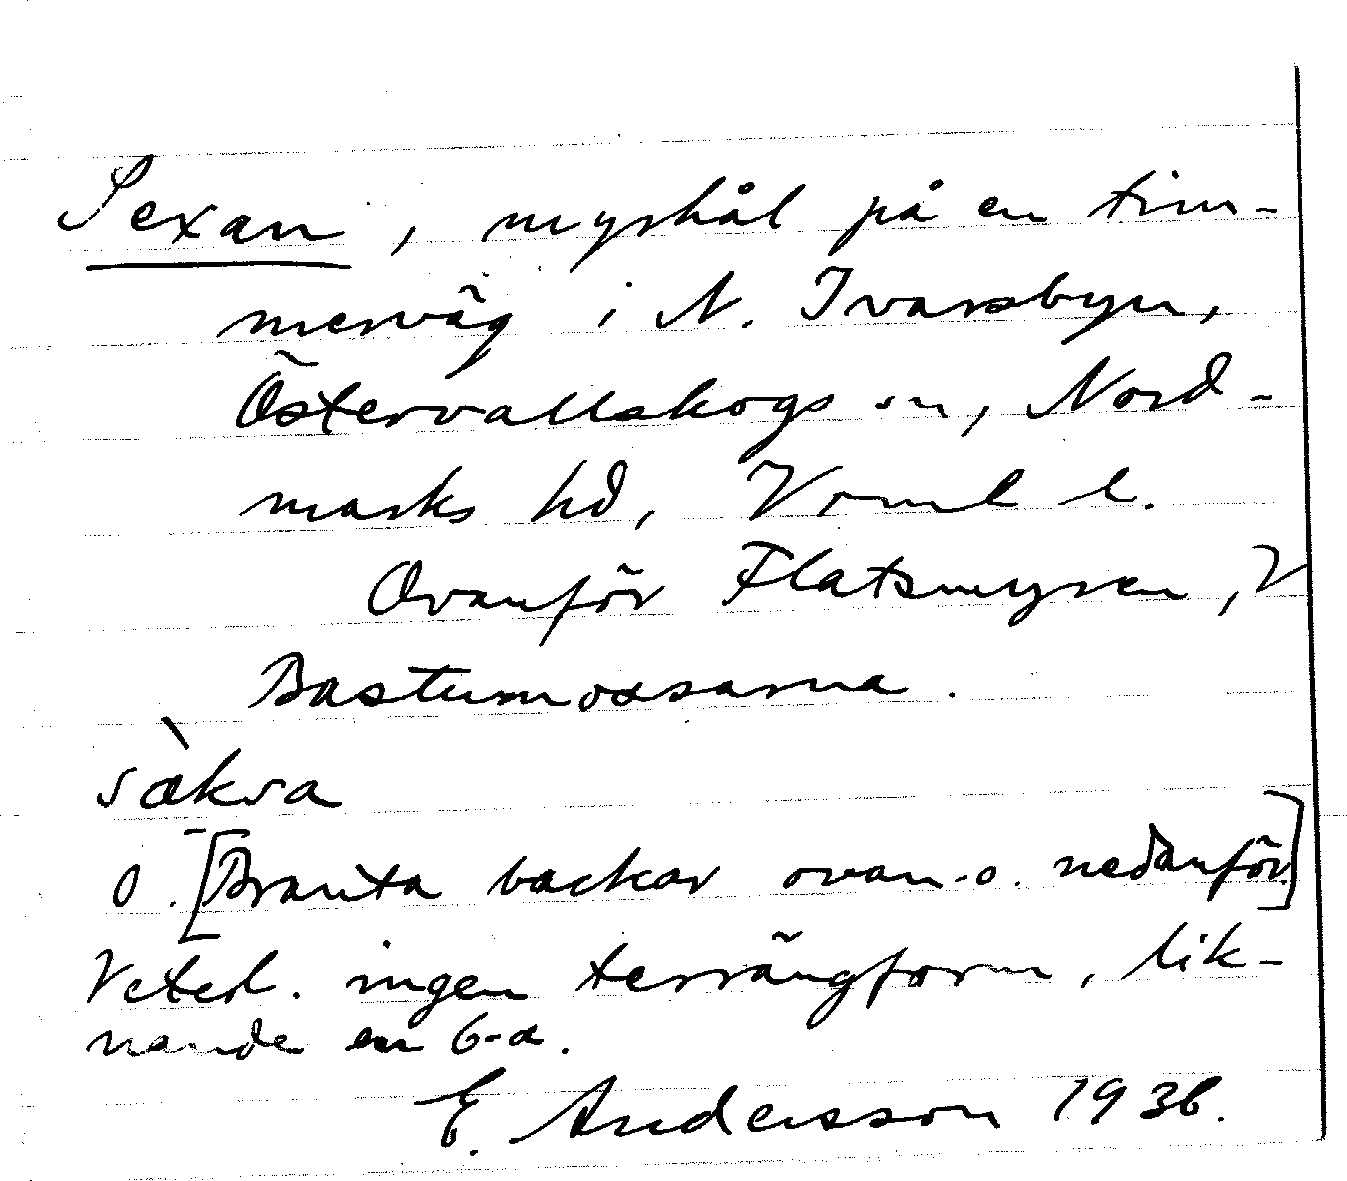 Sexan, myrhål på en tim-
merväg i N. Ivarsbyn,
Östervallskogs sn, Nord-
marks hd, Vrml l.
Ovanför Flatsmyren, V
Bastumossarna.
säkra
O. [Branta backar ovan- o. nedanför.]
Veterl. ingen terrängform, lik-
nande en 6-a.
E. Andersson 1936.